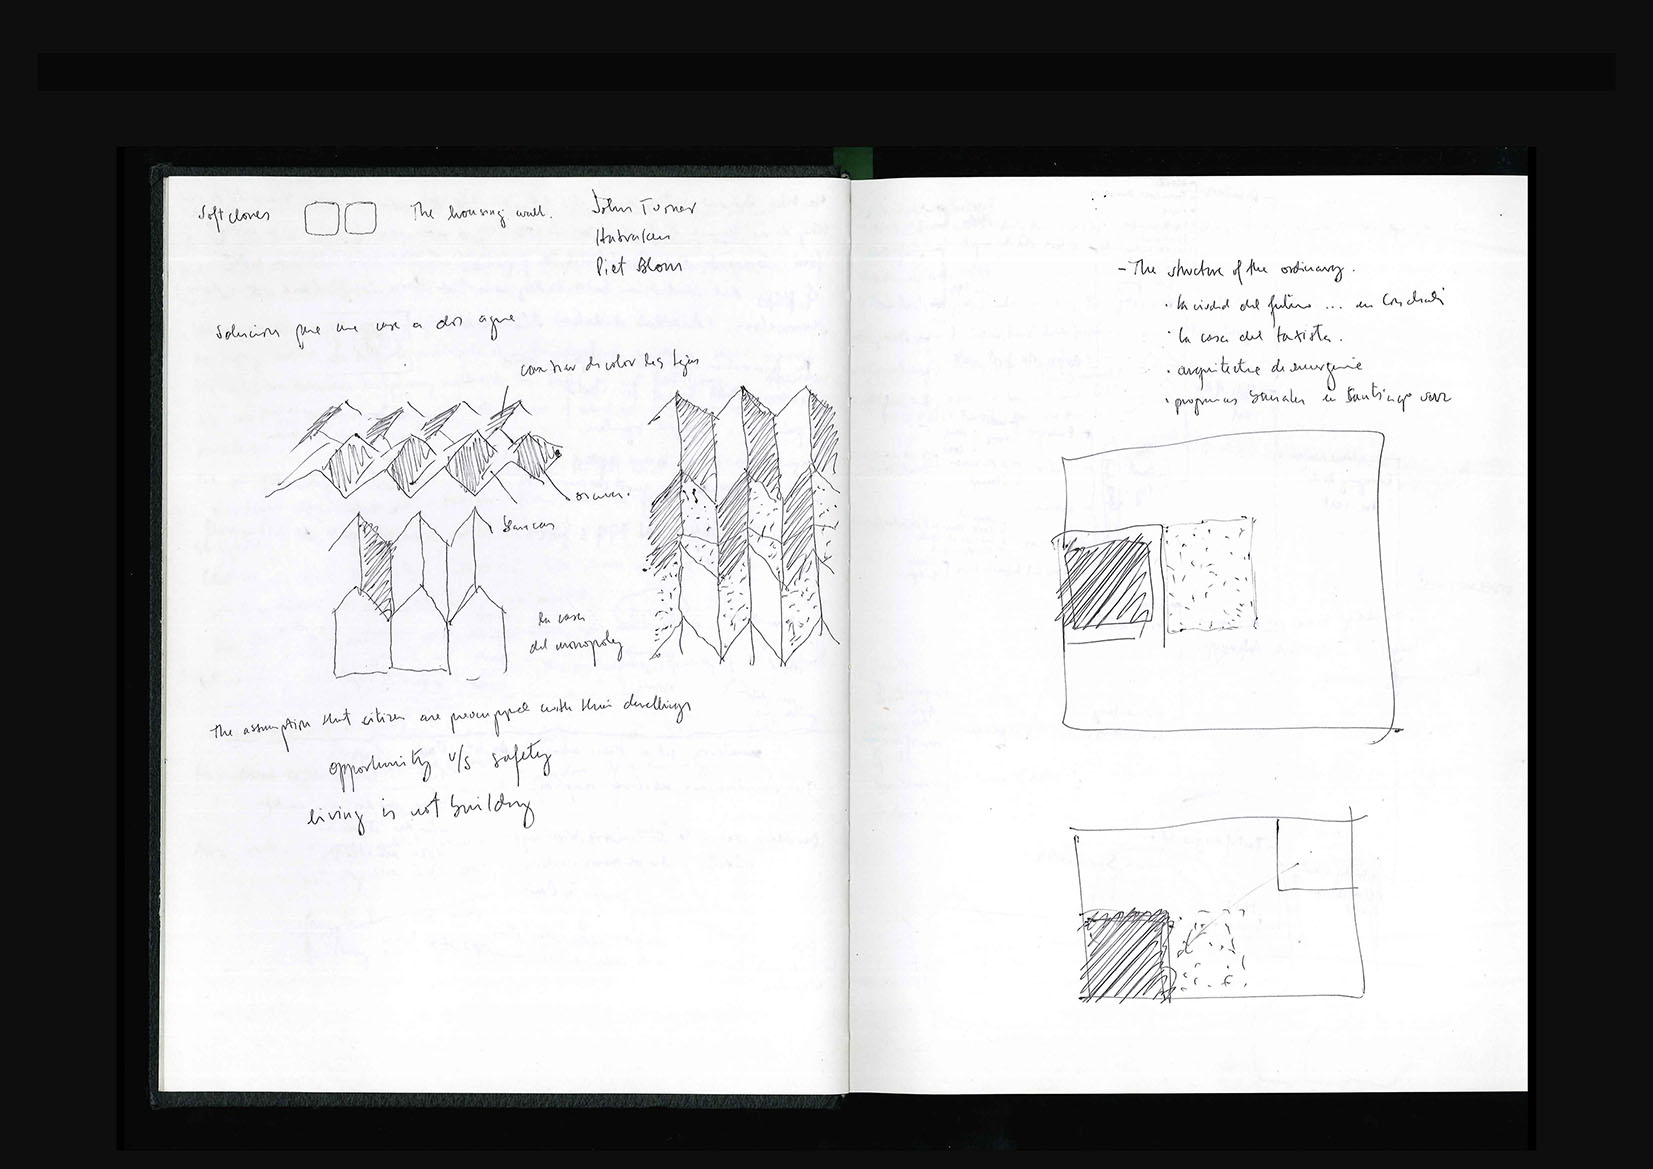 Soft clones
The housing wall.
John Turner
Habraken
Piet Blom
Solucion para una casa a dos aguas
cambiar de color las tejas
oscuras.
blancas
la casa
del monopoly
The assumption that citizen are preocupped with their dwellings
opportunity v/s safety
living is not building
- The structure of the ordinary.
· la ciudad del futuro ... en Conchalí
· la casa del taxista.
· arquitectura de emergencia
· programas sociales en Santiago